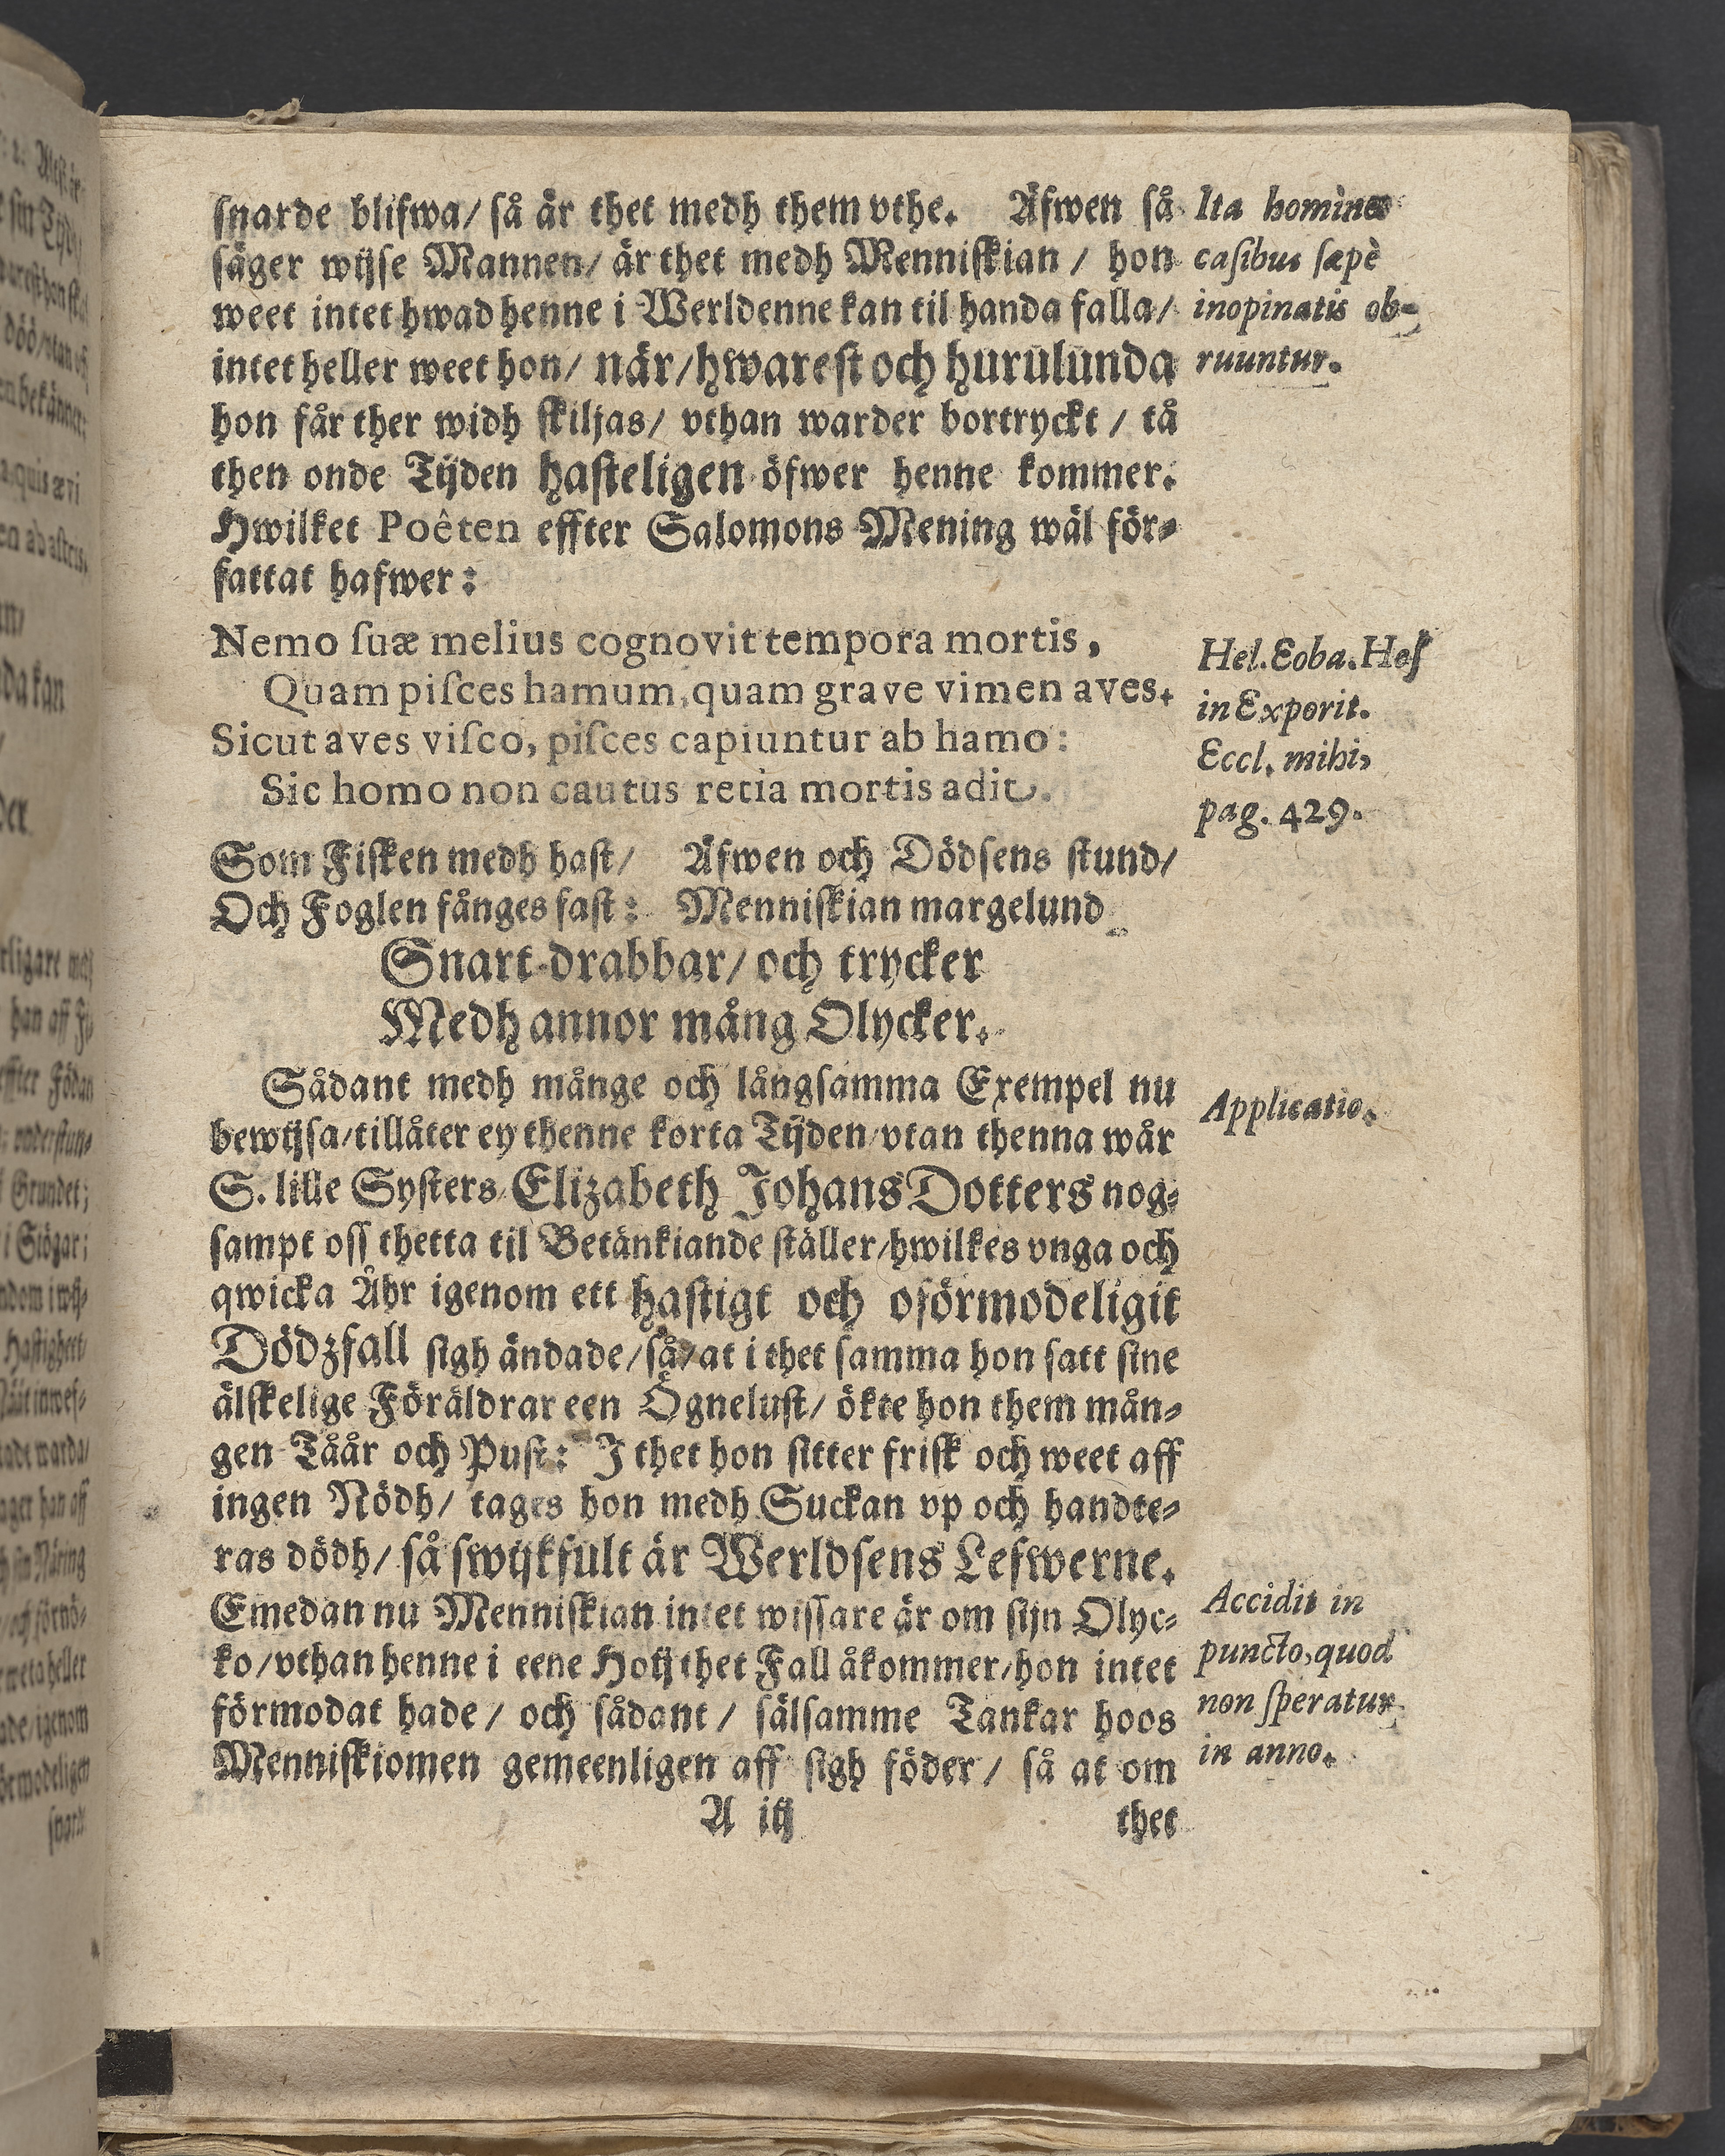 snarde blifwa/ så är thet medh them vthe. Äfwen så
säger wijse Mannen/ är thet medh Menniskian / hon
weet intet hwad henne i Werldenne kan til handa falla/
intet heller weet hon/ när/hwarest och hurulunda
hon får ther widh skiljas/ vthan warder bortryckt / tå
then onde Tijden hasteligen öfwer henne kommer.
Hwilket Poêten effter Salomons Mening wäl för-
fattat hafwer:
Ita homines
casibus sæpè
inopinatis ob-
ruuntur.
Nemo suæ melius cognovit tempora mortis,
Quam pisces hamum, quam grave vimen aves.
Sicut aves visco, pisces capiuntur ab hamo:
Sic homo non cautus retia mortis adit.
Hel. Eoba. Hes
in Exporit.
Eccl. mihi,
pag. 429.
Som Fisken medh hast/ Äfwen och Dödsens stund/
Och Foglen fånges fast: Menniskian margelund
Snart drabbar/ och trycker
Medh annor mång Olycker.
Sådant medh månge och långsamma Exempel nu
bewijsa/tillåter ey thenne korta Tijden/vtan thenna wår
S. lille Systers Elizabeth Johans Dotters nog-
sampt oss thetta til Betänkiande ställer/hwilkes vnga och
qwicka Åhr igenom ett hastigt och oförmodeligit
Dödzfall sigh ändade/så/at i thet samma hon satt sine
älskelige Föräldrar een Ögnelust/ ökte hon them mån-
gen Tåår och Pust: J thet hon sitter frisk och weet aff
ingen Nödh/ tages hon medh Suckan vp och handte-
ras dödh/ så swijkfult är Werldsens Lefwerne.
Emedan nu Menniskian intet wissare är om sijn Olyc-
ko/vthan henne i eene Hoij thet Fall åkommer/hon intet
förmodat hade/ och sådant/ sälsamme Tankar hoos
Menniskiomen gemeenligen aff sigh föder/ så at om
Applicatio.
Accidit in
puncto, quod
non speratur
in anno.
A iij thet